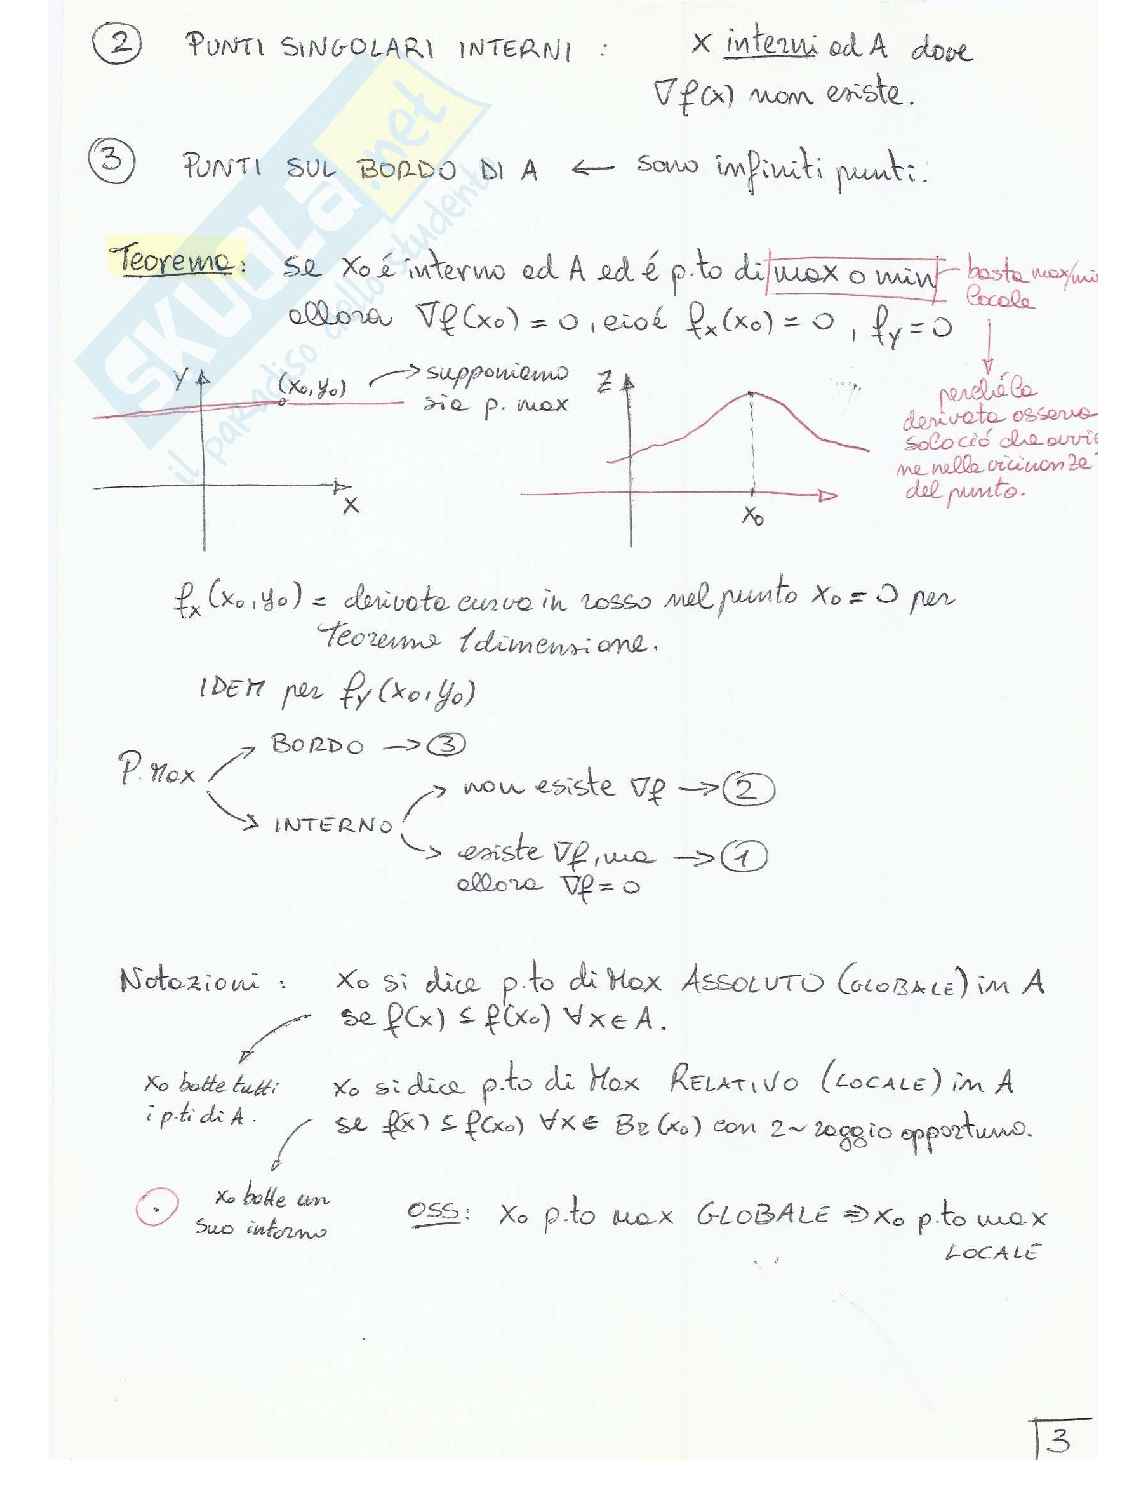 ② PUNTI SINGOLARI INTERNI : x interni ad A dove
∇f(x) non esiste.
③ PUNTI SUL BORDO DI A ← sono infiniti punti.
Teorema: se x₀ é interno ad A ed é p.to di max o min
basta max/mi
locale
allora ∇f(x₀) = 0, cioé fₓ(x₀) = 0, f_y = 0
perché la
derivata osserva
solo ció che avvi
ne nelle vicinanze
del punto.
Y (x₀,y₀) → supponiamo
sia p. max
X
Z
x₀
fₓ(x₀,y₀) = derivata curva in rosso nel punto x₀ = 0 per
Teorema 1dimensione.
IDEM per f_y(x₀,y₀)
P. Max
BORDO → ③
INTERNO
non esiste ∇f → ②
esiste ∇f, ma → ①
allora ∇f = 0
Notazioni : x₀ si dice p.to di Max ASSOLUTO (GLOBALE) in A
se f(x) ≤ f(x₀) ∀x∈A.
x₀ batte tutti
i p.ti di A.
x₀ si dice p.to di Max RELATIVO (LOCALE) in A
se f(x) ≤ f(x₀) ∀x∈ B_r(x₀) con r ~ raggio opportuno.
x₀ batte un
suo intorno
OSS: x₀ p.to max GLOBALE ⇒ x₀ p.to max
LOCALE
3
SKUOLA.net
il paradiso dello studente